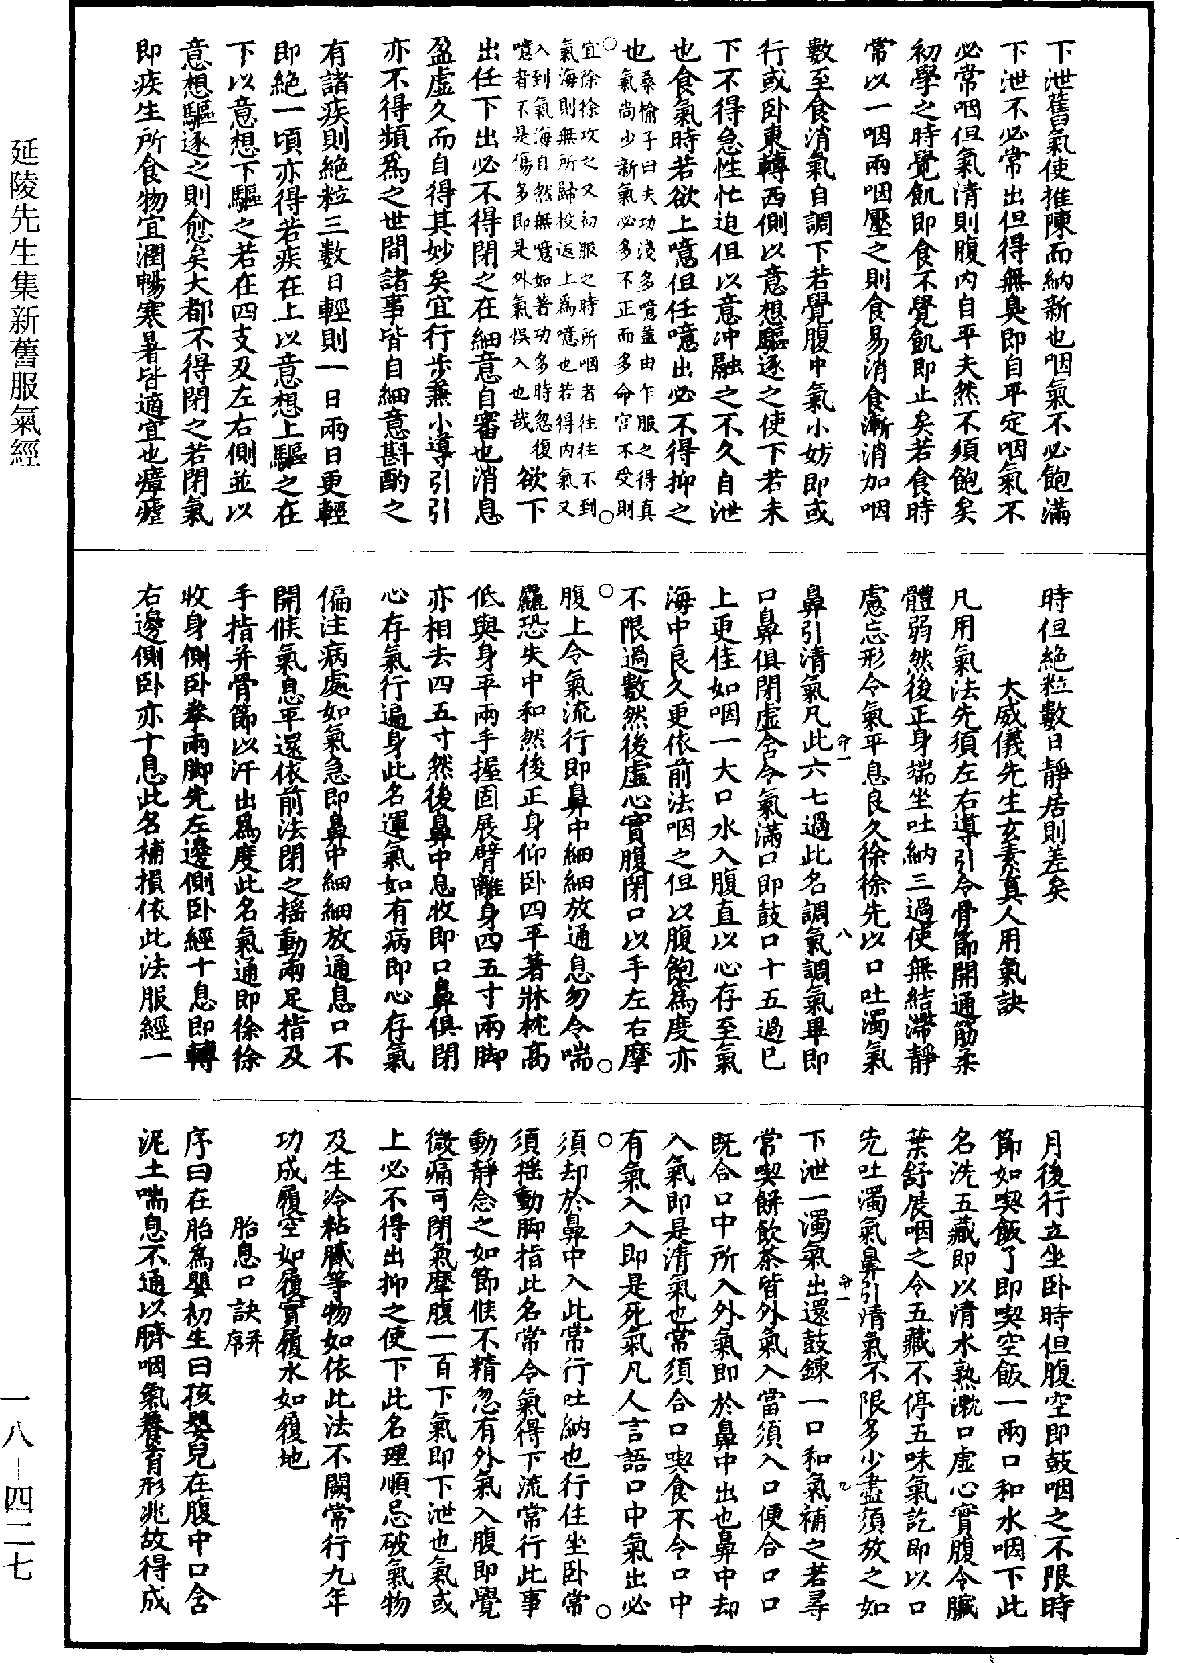 下泄舊氣使推陳而納新也咽氣不必飽滿
下泄不必常出但得無臭即自平定咽氣不
必常咽但氣清則腹內自平夫然不須飽矣
初學之時覺飢即食不覺飢即止矣若食時
常以一咽兩咽壓之則食易消食漸消加咽
數至食消氣自調下若覺腹中氣小妨即或
行或卧東轉西側以意想驅逐之使下若未
下不得急性忙迫但以意沖融之不久自泄
也食氣時若欲上噫但任噫出必不得抑之
也桑愉子曰夫功淺多噫蓋由乍服之得真
氣尚少新氣必多不正而多命宮不受則
宜徐徐攻之又初服之時所咽者往往不到
氣海則無所歸投返上為噫也若得內氣又
入到氣海自然無噫如著功多時忽復
噫者不是傷多即是外氣悞入也哉欲下
出任下出必不得閉之在細意自審也消息
盈虛久而自得其妙矣宜行步兼小導引引
亦不得頻為之世間諸事皆自細意斟酌之
有諸疾則絕粒三數日輕則一日兩日更輕
即絕一頃亦得若疾在上以意想上驅之在
下以意想下驅之若在四支及左右側並以
意想驅逐之則愈矣大都不得閉之若閉氣
即疾生所食物宜潤暢寒暑皆適宜也瘴瘧
時但絕粒數日靜居則差矣
太威儀先生玄素真人用氣訣
凡用氣法先須左右導引令骨節開通筋柔
體弱然後正身端坐吐納三過使無結滯靜
慮忘形令氣平息良久徐徐先以口吐濁氣
鼻引清氣凡此六七過此名調氣調氣畢即
口鼻俱閉虛含令氣滿口即鼓口十五過已
上更佳如咽一大口水入腹直以心存至氣
海中良久更依前法咽之但以腹飽為度亦
不限過數然後虛心實腹閉口以手左右摩
腹上令氣流行即鼻中細細放通息勿令喘
麤恐失中和然後正身仰卧四平著牀枕高
低與身平兩手握固展臂離身四五寸兩脚
亦相去四五寸然後鼻中息收即口鼻俱閉
心存氣行遍身此名運氣如有病即心存氣
偏注病處如氣急即鼻中細細放通息口不
開候氣息平還依前法閉之搖動兩足指及
手指并骨節以汗出為度此名氣通即徐徐
收身側卧拳兩脚先左邊側卧經十息即轉
右邊側卧亦十息此名補損依此法服經一
月後行立坐卧時但腹空即鼓咽之不限時
節如喫飯了即喫空飯一兩口和水咽下此
名洗五藏即以清水熟漱口虛心實腹令臟
葉舒展咽之令五藏不停五味氣訖即以口
先吐濁氣鼻引清氣不限多少盡須放之如
下泄一濁氣出還鼓鍊一口和氣補之若尋
常喫餅飲茶皆外氣入當須入口便合口口
既合口中所入外氣即於鼻中出也鼻中却
入氣即是清氣也常須合口喫食不令口中
有氣入入即是死氣凡人言語口中氣出必
須却於鼻中入此常行吐納也行住坐卧常
須搖動脚指此名常令氣得下流常行此事
動靜念之如節候不精忽有外氣入腹即覺
微痛可閉氣摩腹一百下氣即下泄也氣或
上必不得出抑之使下此名理順忌破氣物
及生冷粘膩等物如依此法不闕常行九年
功成履空如履實履水如履地
胎息口訣并序
序曰在胎為嬰初生曰孩嬰兒在腹中口含
泥土喘息不通以臍咽氣養育形兆故得成
延陵先生集新舊服氣經
一八—四二七